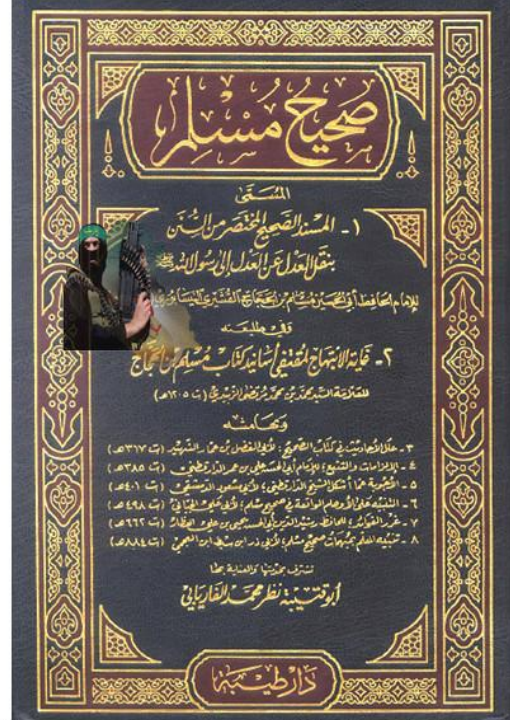 صحيح مسلم
المسمى
١- المسند الصحيح المختصر من السنن
بنقل العدل عن العدل إلى رسول الله ﷺ
للإمام الحافظ أبي الحسين مسلم بن الحجاج القشيري النيسابوري
وفي طليعته
٢- غاية الابتهاج لمقتفي أسانيد كتاب مسلم بن الحجاج
للعلامة السيد محمد بن محمد مرتضى الزبيدي (ت ١٢٠٥هـ)
وبهامشه
٣- علل الأحاديث في كتاب الصحيح: لأبي الفضل بن عمار الشهيد (ت ٣١٧هـ)
٤- الإلزامات والتتبع: للإمام أبي الحسن علي بن عمر الدارقطني (ت ٣٨٥هـ)
٥- الأجوبة عما أشكل الشيخ الدارقطني: لأبي مسعود الدمشقي (ت ٤٠١هـ)
٦- التنبيه على الأوهام الواقعة في صحيح مسلم: لأبي علي الجياني (ت ٤٩٨هـ)
٧- غرر الفوائد: للحافظ رشيد الدين أبي الحسن يحيى بن علي العطار (ت ٦٦٢هـ)
٨- تنبيه المعلم بمبهمات صحيح مسلم: لأبي ذر ابن سبط ابن العجمي (ت ٨٨٤هـ)
تشرف بخدمتها والعناية بها
أبو قتيبة نظر محمد الفاريابي
دار طيبة